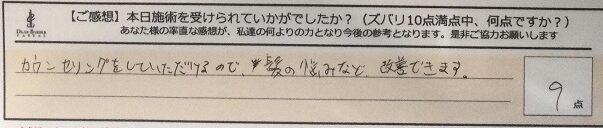 【ご感想】本日施術を受けられていかがでしたか？（ズバリ10点満点中、何点ですか？）
あなた様の率直な感想が、私達の何よりの力となり今後の参考となります。是非ご協力お願いします
カウンセリングをしていただけるので、髪の悩みなど、改善できます。
9点